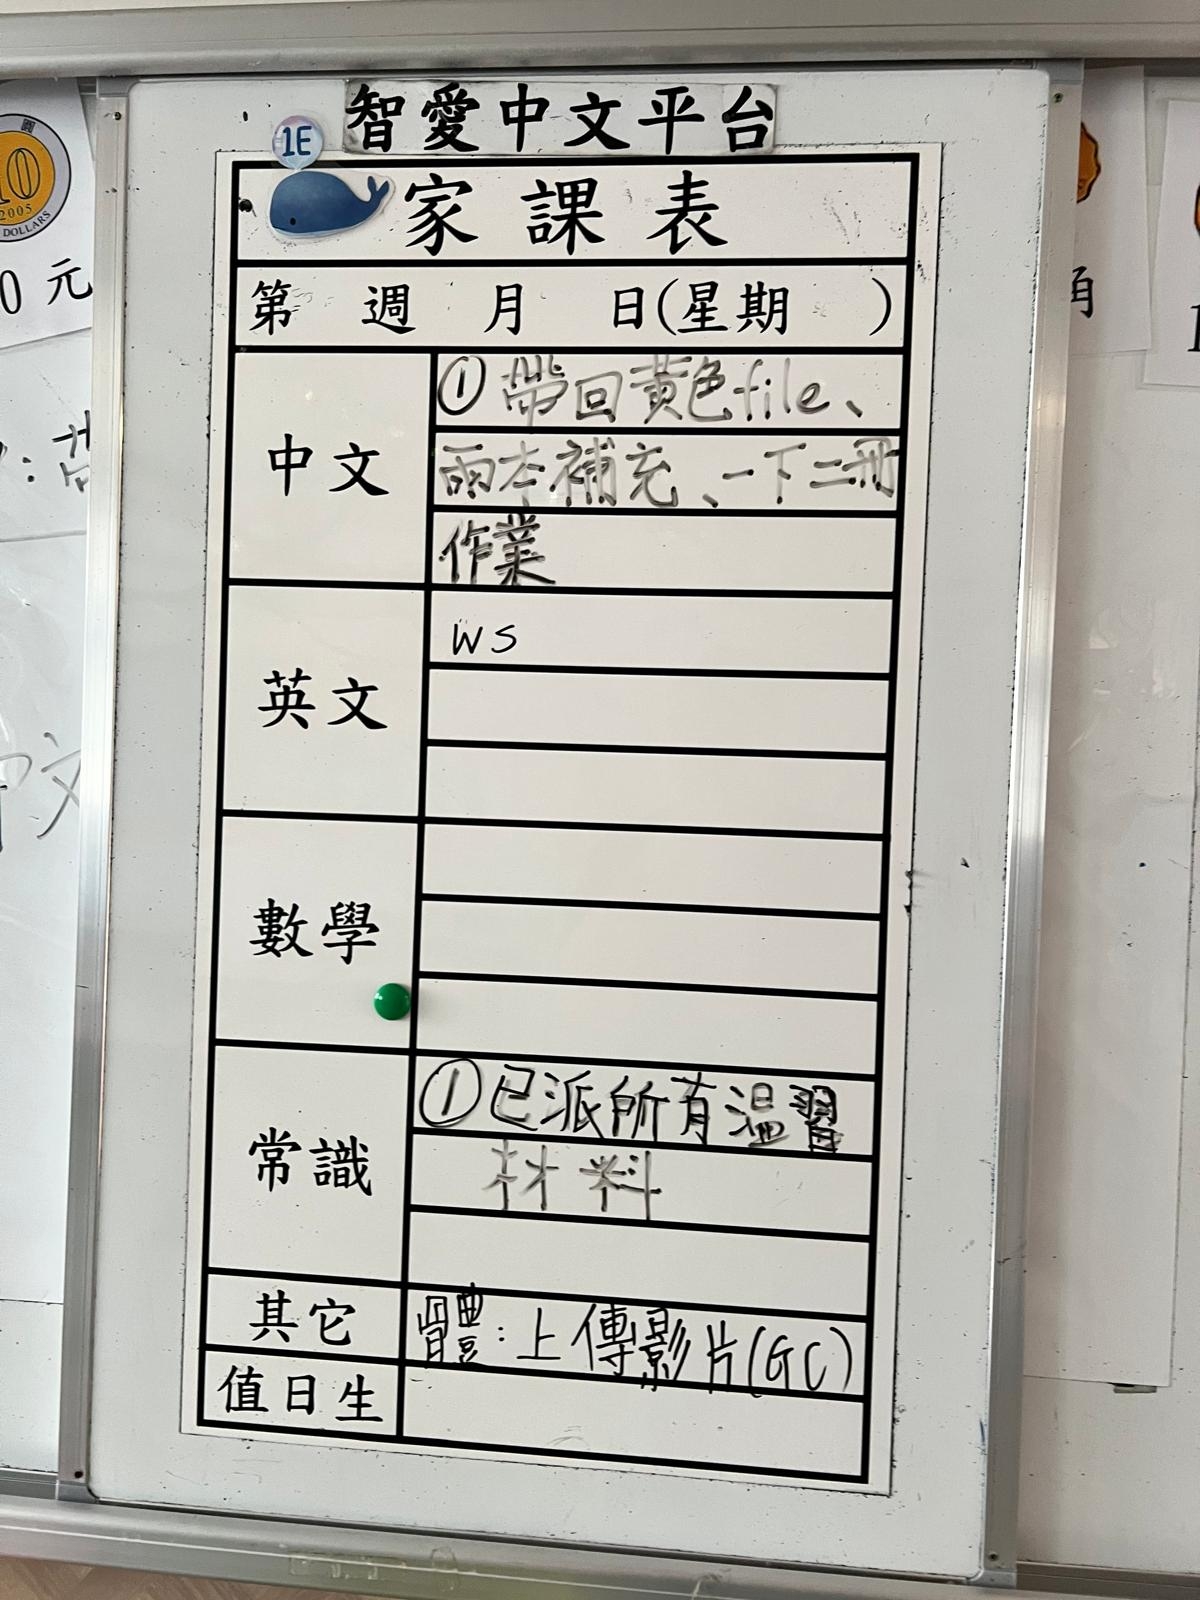 智愛中文平台
1E
家課表
第 週 月 日(星期 )
中文
① 帶回黃色file、
兩本補充、一下二冊
作業
英文
WS
數學
常識
① 已派所有溫習
材料
其它
體：上傳影片(GC)
值日生
10
2005
DOLLARS
0 元
角
文